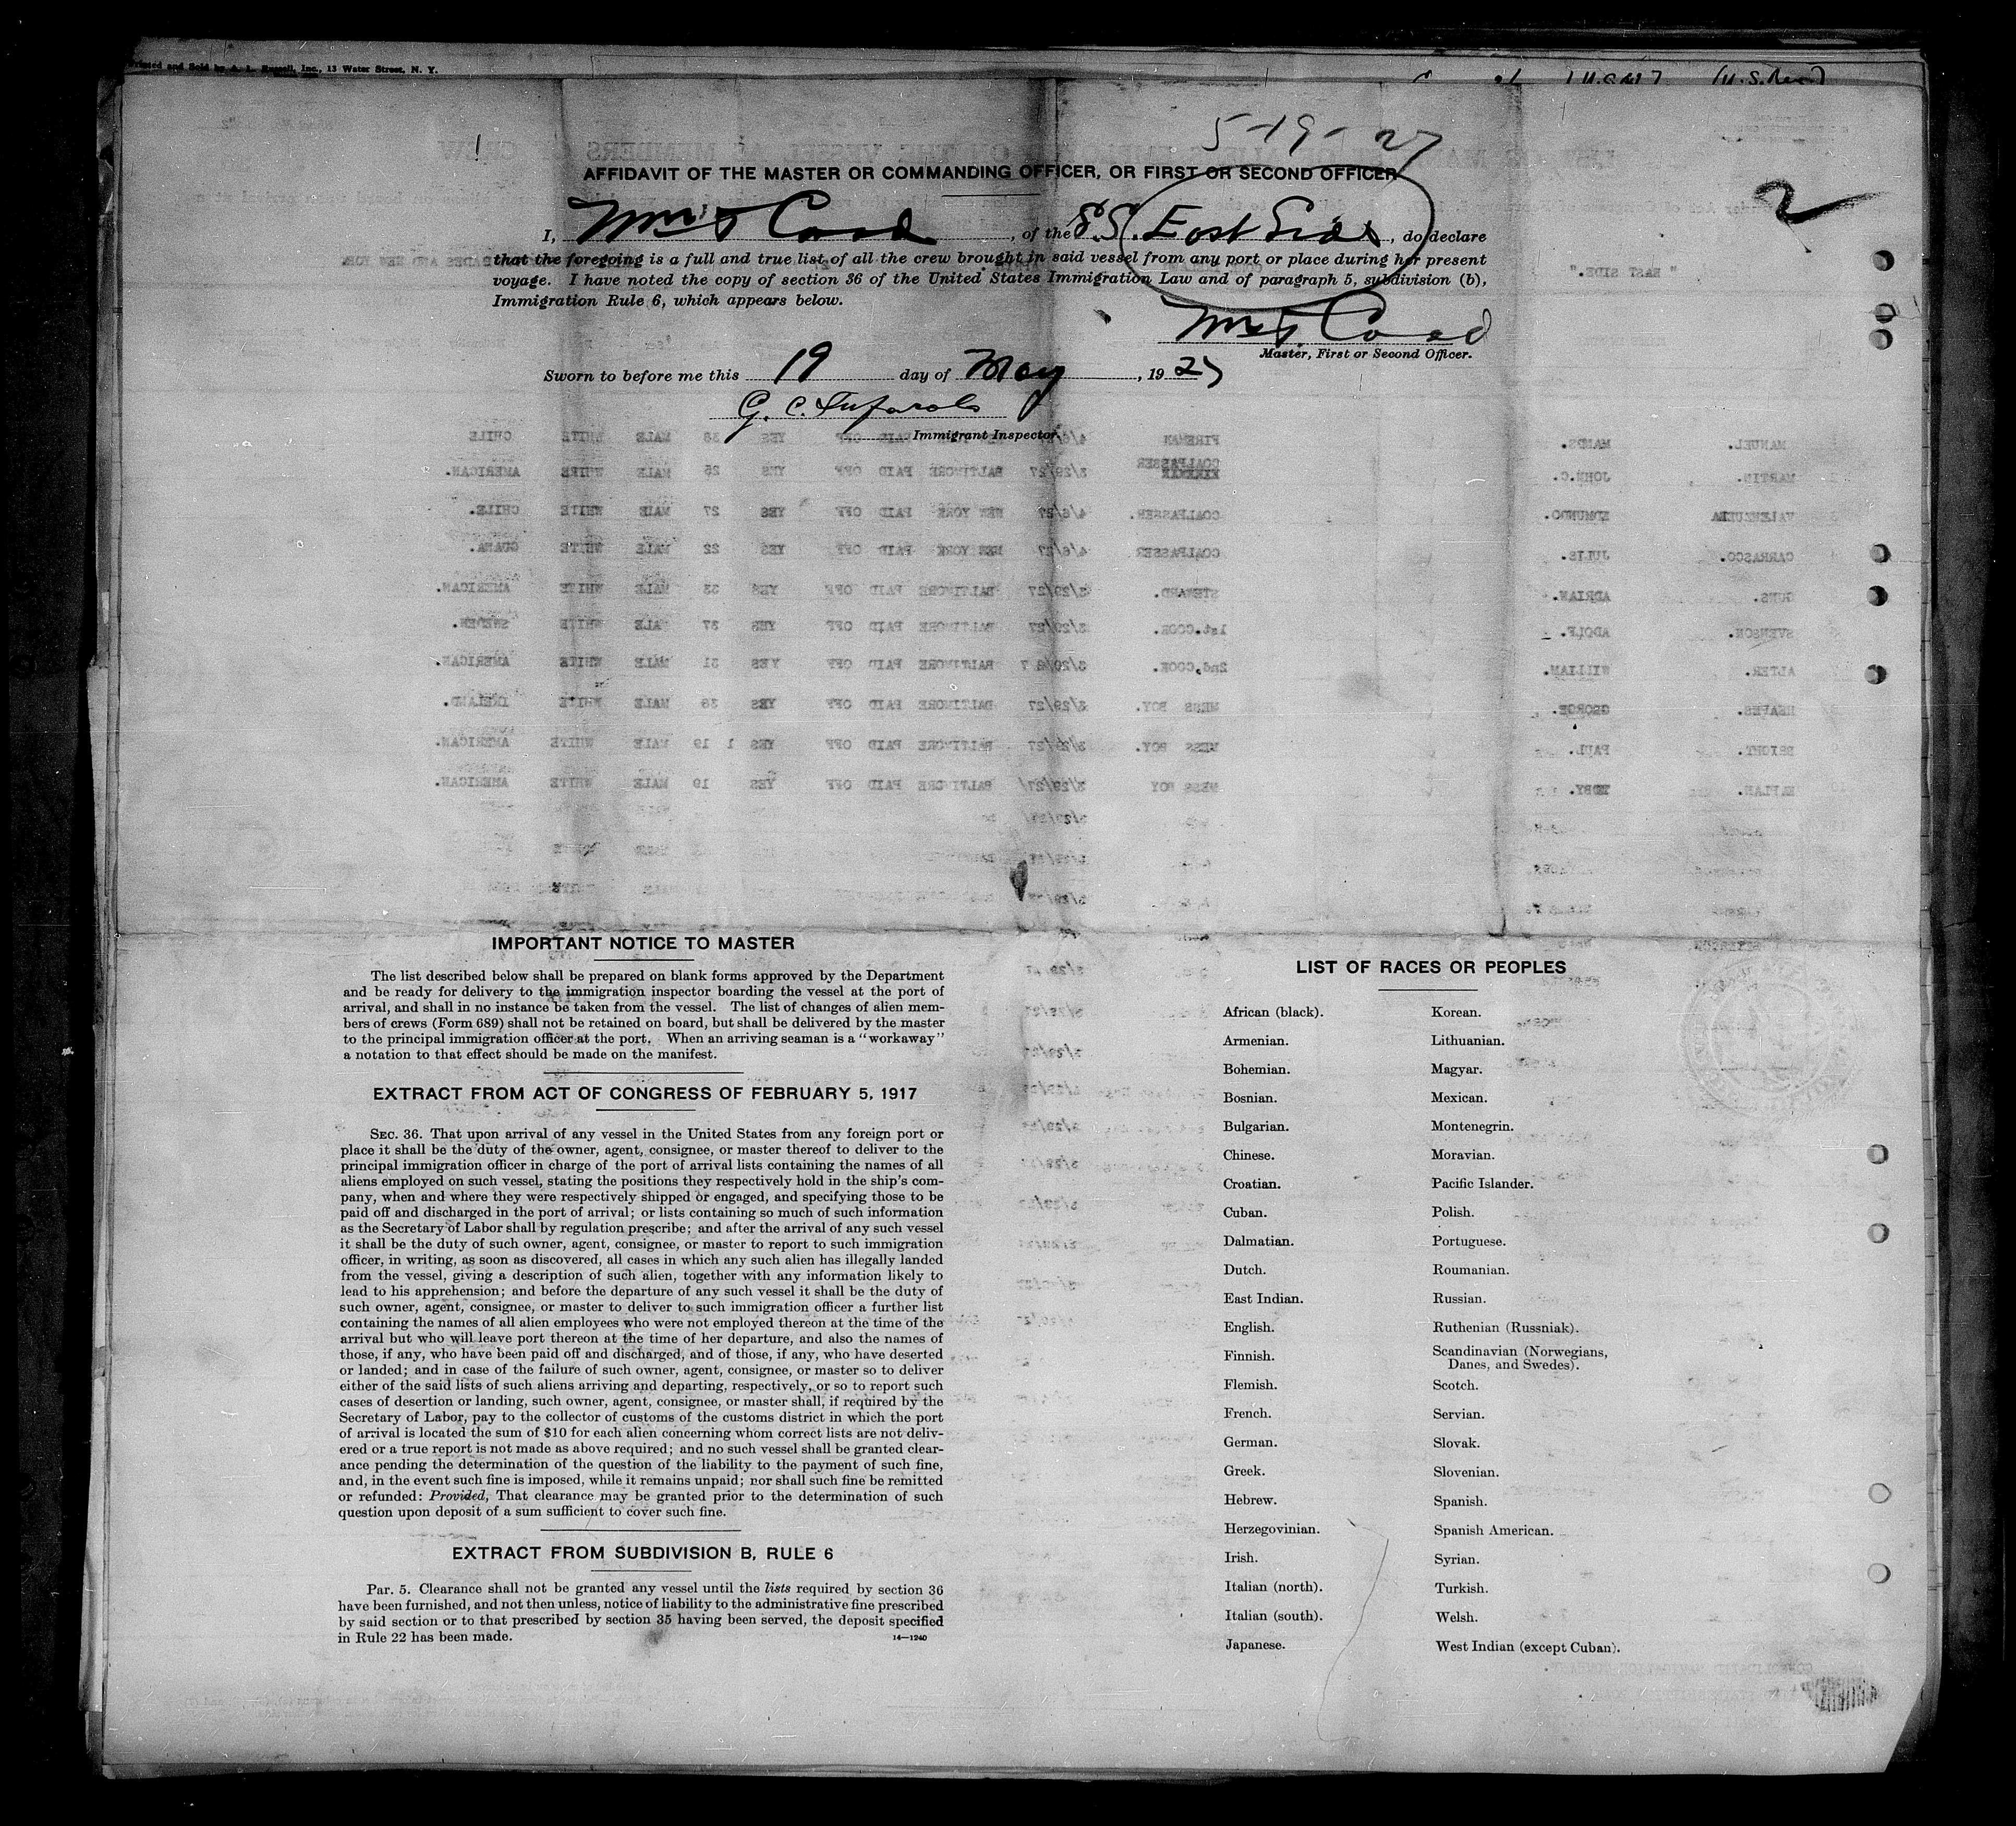 Printed and Sold by A. L. Russell, Inc., 13 Water Street, N. Y.
5-19-27
2
AFFIDAVIT OF THE MASTER OR COMMANDING OFFICER, OR FIRST OR SECOND OFFICER
I, Wm T Coad, of the S.S. East Side, do declare
that the foregoing is a full and true list of all the crew brought in said vessel from any port or place during her present
voyage. I have noted the copy of section 36 of the United States Immigration Law and of paragraph 5, subdivision (b),
Immigration Rule 6, which appears below.
Wm T. Coad
Master, First or Second Officer.
Sworn to before me this 19 day of May, 1927
G. C.
Immigrant Inspector.
IMPORTANT NOTICE TO MASTER
The list described below shall be prepared on blank forms approved by the Department
and be ready for delivery to the immigration inspector boarding the vessel at the port of
arrival, and shall in no instance be taken from the vessel. The list of changes of alien mem-
bers of crews (Form 689) shall not be retained on board, but shall be delivered by the master
to the principal immigration officer at the port. When an arriving seaman is a "workaway"
a notation to that effect should be made on the manifest.
EXTRACT FROM ACT OF CONGRESS OF FEBRUARY 5, 1917
SEC. 36. That upon arrival of any vessel in the United States from any foreign port or
place it shall be the duty of the owner, agent, consignee, or master thereof to deliver to the
principal immigration officer in charge of the port of arrival lists containing the names of all
aliens employed on such vessel, stating the positions they respectively hold in the ship's com-
pany, when and where they were respectively shipped or engaged, and specifying those to be
paid off and discharged in the port of arrival; or lists containing so much of such information
as the Secretary of Labor shall by regulation prescribe; and after the arrival of any such vessel
it shall be the duty of such owner, agent, consignee, or master to report to such immigration
officer, in writing, as soon as discovered, all cases in which any such alien has illegally landed
from the vessel, giving a description of such alien, together with any information likely to
lead to his apprehension; and before the departure of any such vessel it shall be the duty of
such owner, agent, consignee, or master to deliver to such immigration officer a further list
containing the names of all alien employees who were not employed thereon at the time of the
arrival but who will leave port thereon at the time of her departure, and also the names of
those, if any, who have been paid off and discharged, and of those, if any, who have deserted
or landed; and in case of the failure of such owner, agent, consignee, or master so to deliver
either of the said lists of such aliens arriving and departing, respectively, or so to report such
cases of desertion or landing, such owner, agent, consignee, or master shall, if required by the
Secretary of Labor, pay to the collector of customs of the customs district in which the port
of arrival is located the sum of $10 for each alien concerning whom correct lists are not deliv-
ered or a true report is not made as above required; and no such vessel shall be granted clear-
ance pending the determination of the question of the liability to the payment of such fine,
and, in the event such fine is imposed, while it remains unpaid; nor shall such fine be remitted
or refunded: Provided, That clearance may be granted prior to the determination of such
question upon deposit of a sum sufficient to cover such fine.
EXTRACT FROM SUBDIVISION B, RULE 6
Par. 5. Clearance shall not be granted any vessel until the lists required by section 36
have been furnished, and not then unless, notice of liability to the administrative fine prescribed
by said section or to that prescribed by section 35 having been served, the deposit specified
in Rule 22 has been made.
14—1240
LIST OF RACES OR PEOPLES
African (black).
Armenian.
Bohemian.
Bosnian.
Bulgarian.
Chinese.
Croatian.
Cuban.
Dalmatian.
Dutch.
East Indian.
English.
Finnish.
Flemish.
French.
German.
Greek.
Hebrew.
Herzegovinian.
Irish.
Italian (north).
Italian (south).
Japanese.
Korean.
Lithuanian.
Magyar.
Mexican.
Montenegrin.
Moravian.
Pacific Islander.
Polish.
Portuguese.
Roumanian.
Russian.
Ruthenian (Russniak).
Scandinavian (Norwegians,
Danes, and Swedes).
Scotch.
Servian.
Slovak.
Slovenian.
Spanish.
Spanish American.
Syrian.
Turkish.
Welsh.
West Indian (except Cuban).